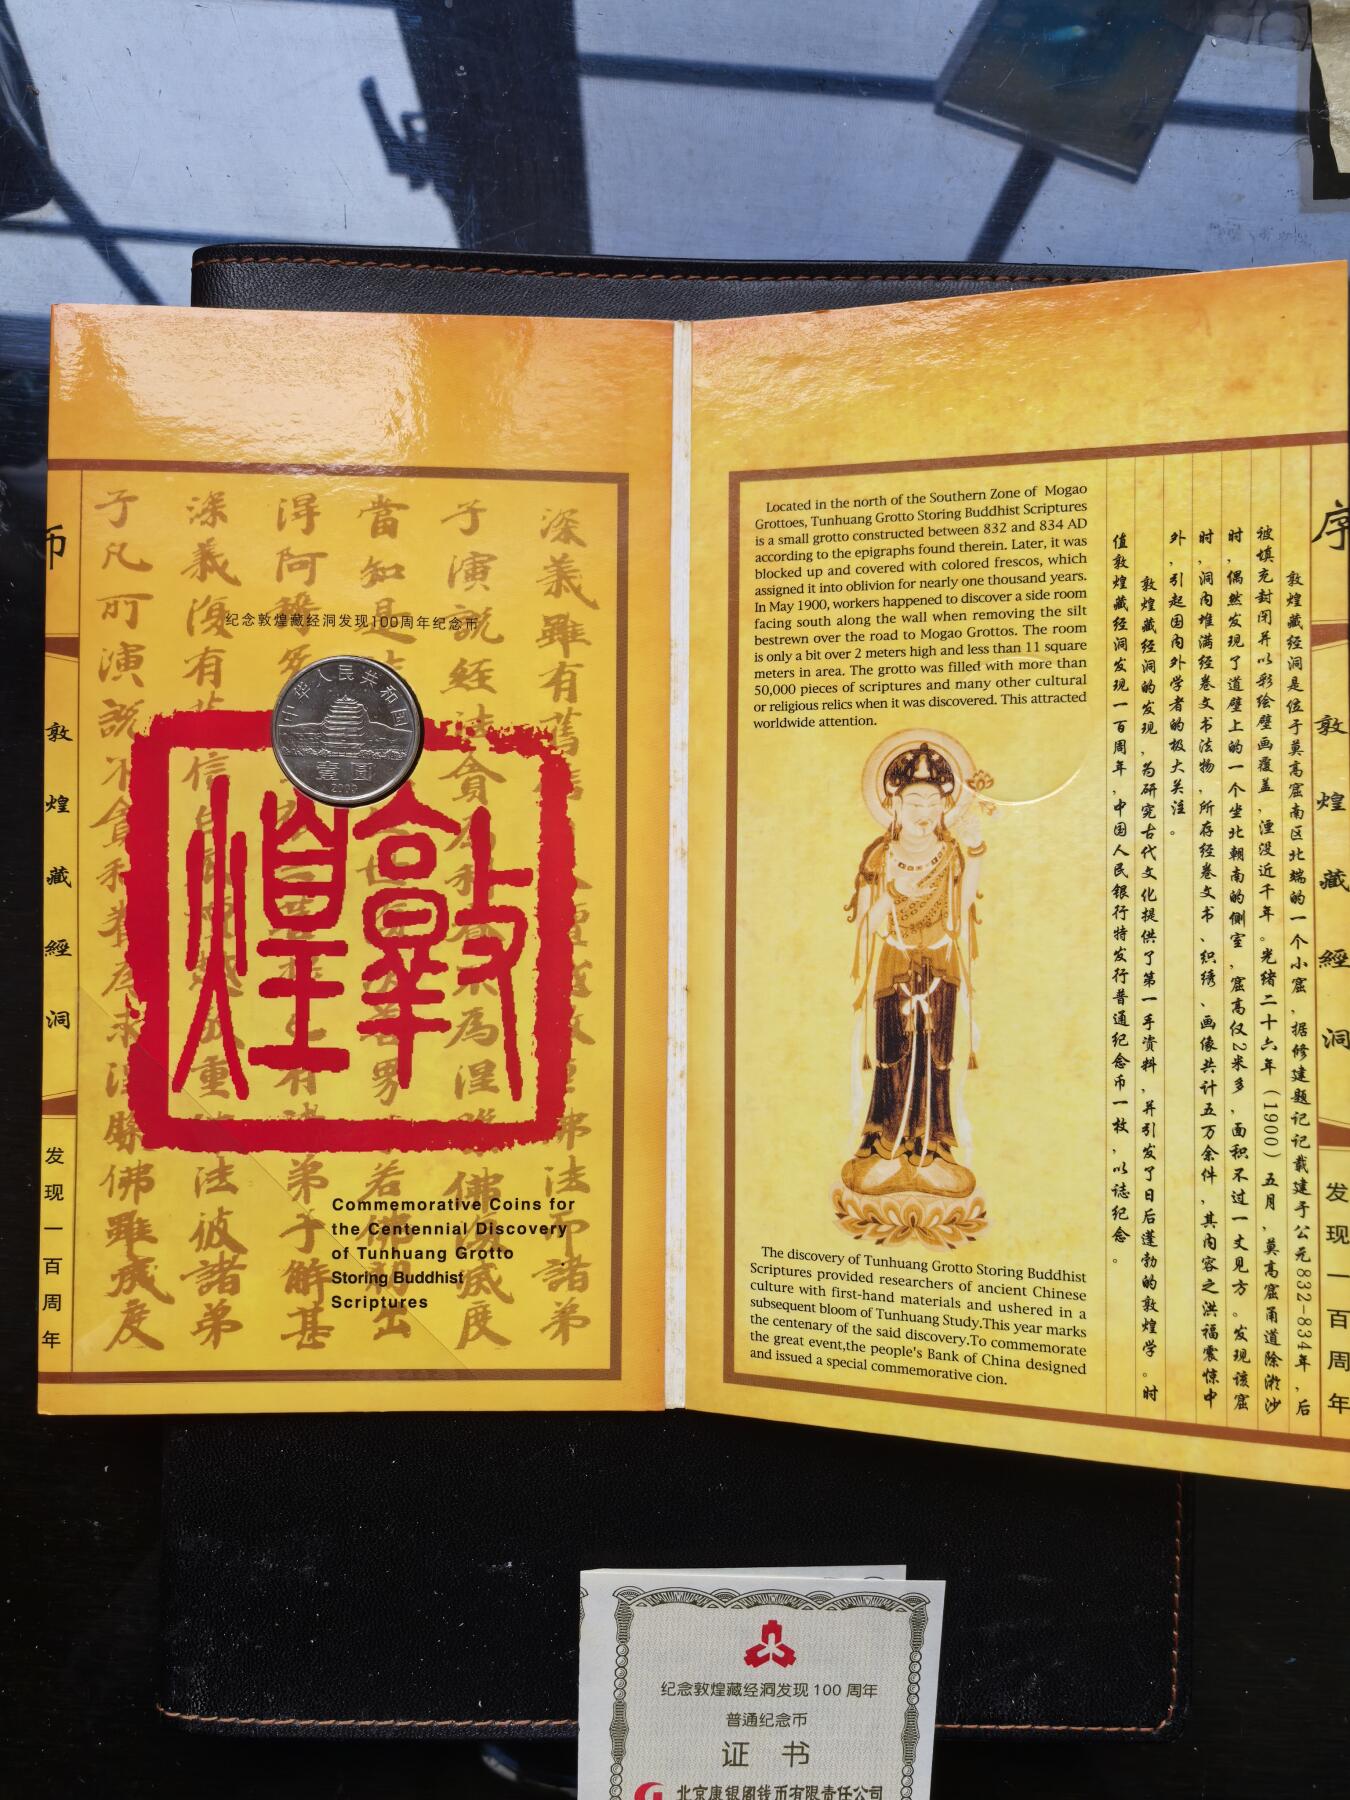 币
敦煌藏經洞
发现一百周年
纪念敦煌藏经洞发现100周年纪念币
中华人民共和国
壹圆
2000
敦煌
Commemorative Coins for
the Centennial Discovery
of Tunhuang Grotto
Storing Buddhist
Scriptures
Located in the north of the Southern Zone of Mogao
Grottoes, Tunhuang Grotto Storing Buddhist Scriptures
is a small grotto constructed between 832 and 834 AD
according to the epigraphs found therein. Later, it was
blocked up and covered with colored frescos, which
assigned it into oblivion for nearly one thousand years.
In May 1900, workers happened to discover a side room
facing south along the wall when removing the silt
bestrewn over the road to Mogao Grottos. The room
is only a bit over 2 meters high and less than 11 square
meters in area. The grotto was filled with more than
50,000 pieces of scriptures and many other cultural
or religious relics when it was discovered. This attracted
worldwide attention.
The discovery of Tunhuang Grotto Storing Buddhist
Scriptures provided researchers of ancient Chinese
culture with first-hand materials and ushered in a
subsequent bloom of Tunhuang Study.This year marks
the centenary of the said discovery.To commemorate
the great event,the people's Bank of China designed
and issued a special commemorative cion.
序
敦煌藏經洞
发现一百周年
敦煌藏经洞是位于莫高窟南区北端的一个小窟,据修建题记记载建于公元832-834年,后
被填充封闭并以彩绘壁画覆盖,湮没近千年。光绪二十六年(1900)五月,莫高窟甬道除淤沙
时,偶然发现了道壁上的一个坐北朝南的侧室,窟高仅2米多,面积不过一丈见方。发现该窟
时,洞内堆满经卷文书法物,所存经卷文书、织绣、画像共计五万余件,其内容之洪福震惊中
外,引起国内外学者的极大关注。
敦煌藏经洞的发现,为研究古代文化提供了第一手资料,并引发了日后蓬勃的敦煌学。时
值敦煌藏经洞发现一百周年,中国人民银行特发行普通纪念币一枚,以志纪念。
纪念敦煌藏经洞发现100周年
普通纪念币
证书
北京康银阁钱币有限责任公司